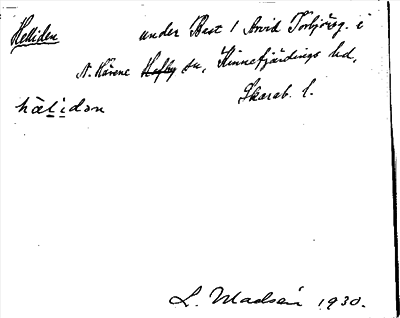 Helliden under Best 1 Arvid Torbjörsg. i
N. Kärene sn, Kinnefjärdings hd,
Skarab. l.
hælidan
L. Madsén 1930.